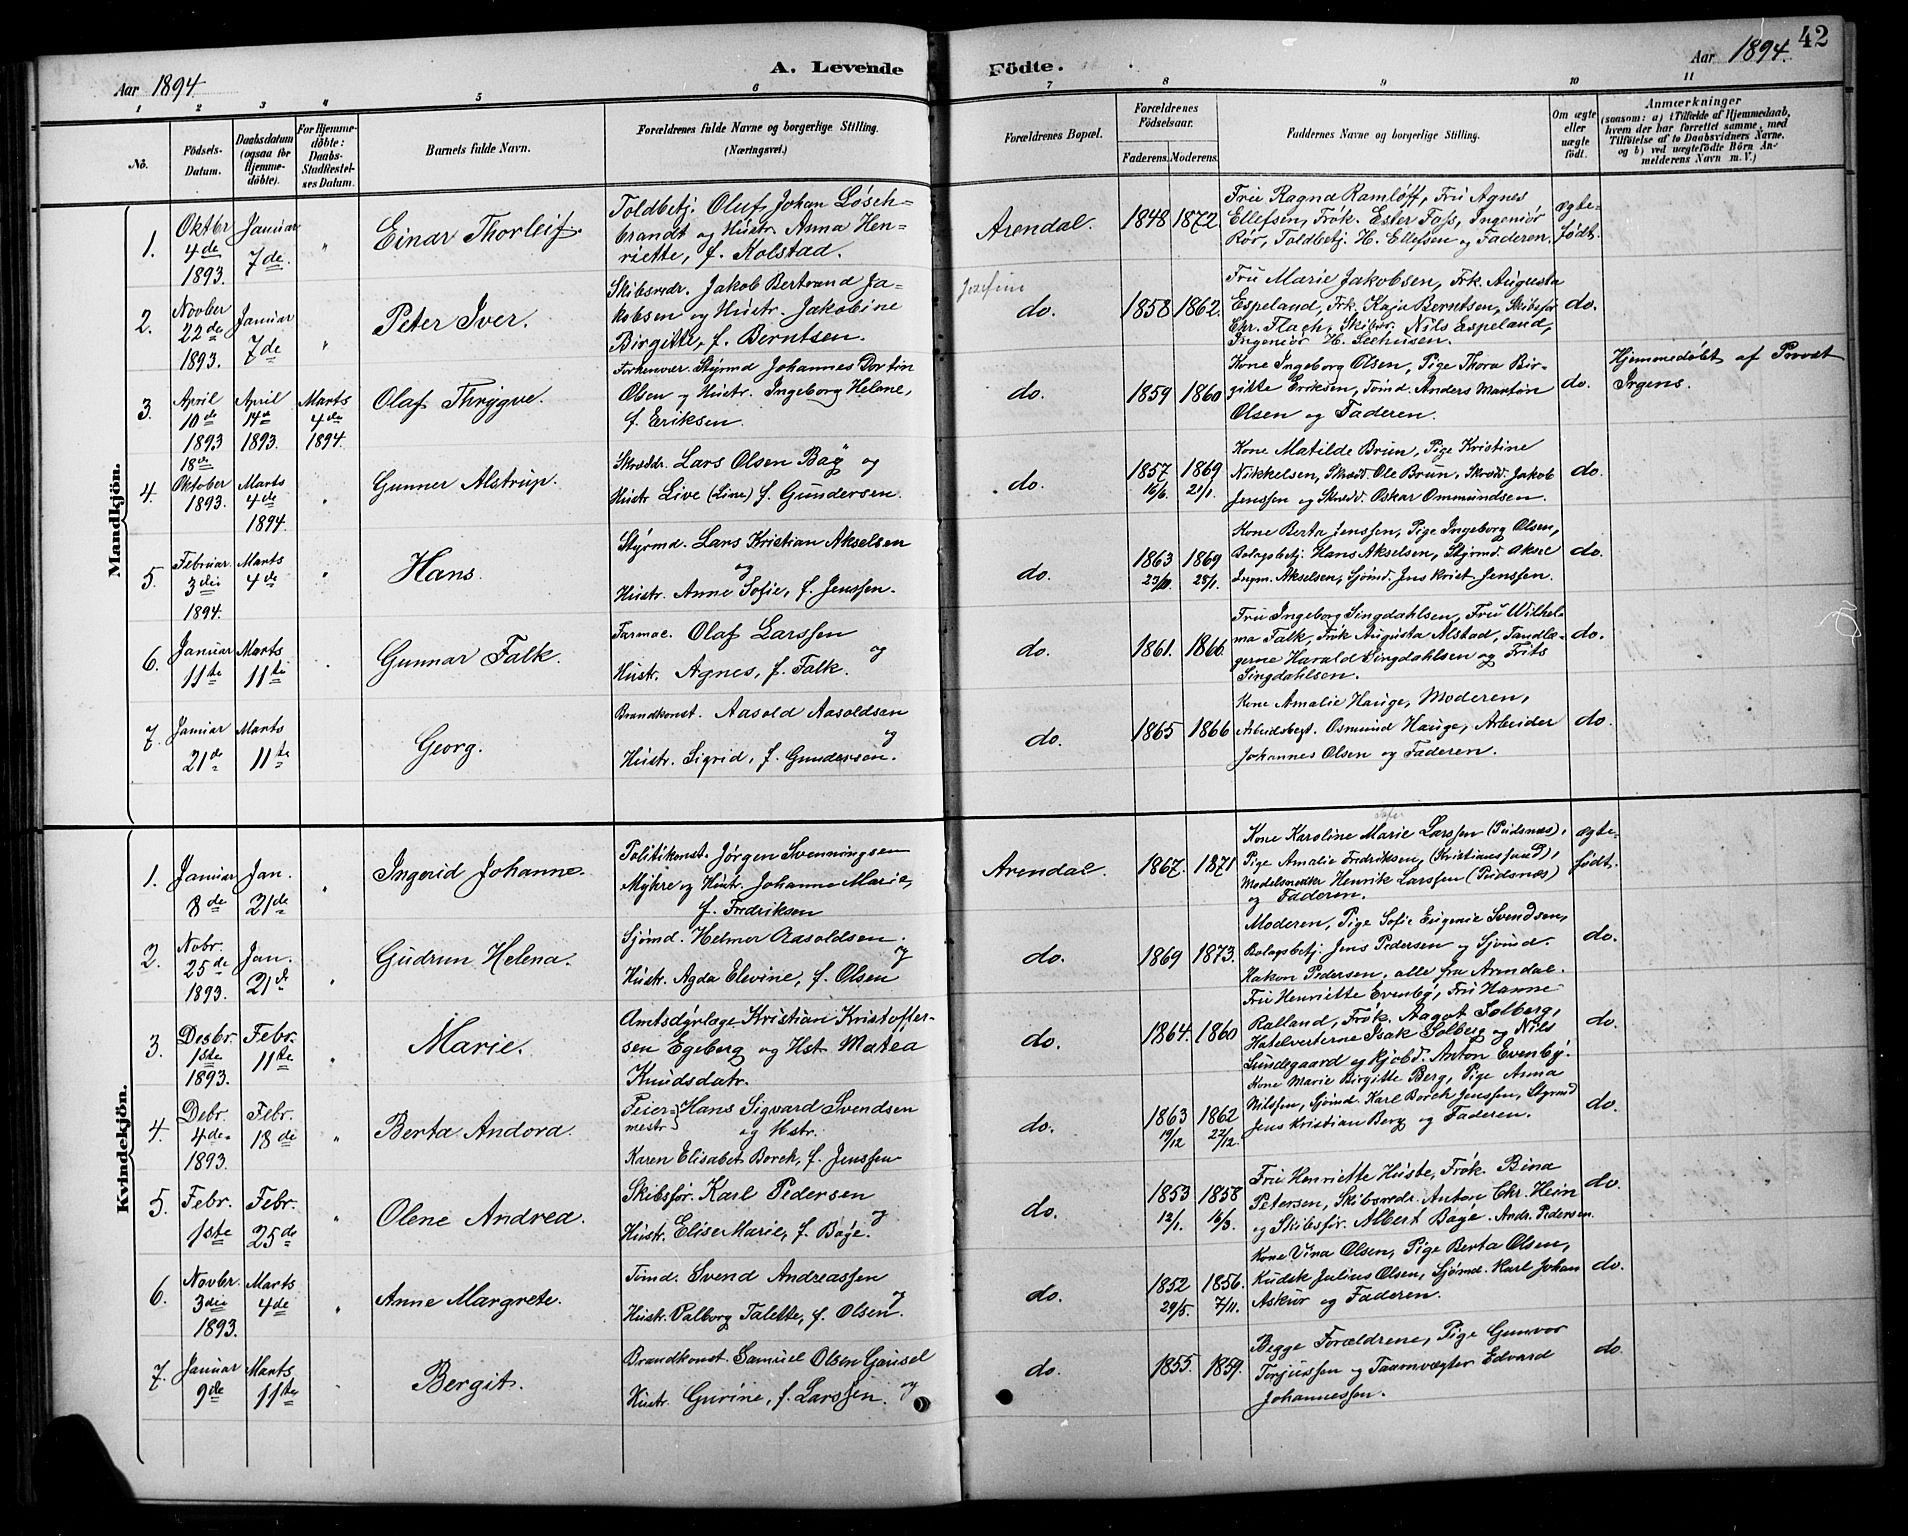 42
Aar 1894. A. Levende Födte. Aar 1894.
1 2 3 4 5 6 7 8 9 10 11
No.
Födsels-
Datum.
Daabsdatum
(ogsaa for
Hjemme-
döbte).
For Hjemme-
döbte:
Daabs-
Stadfæstel-
ses Datum.
Barnets fulde Navn.
Forældrenes fulde Navne og borgerlige Stilling.
(Næringsvei.)
Forældrenes Bopæl.
Forældrenes
Födselsaar.
Faderens. Moderens.
Faddernes Navne og borgerlige Stilling.
Om ægte
eller
uægte
födt.
Anmærkninger
(saasom: a) i Tilfælde af Hjemmedaab,
hvem der har forrettet samme, med
Tilföielse af to Daabsvidners Navne,
og b) ved uægtefödte Börn An-
melderens Navn m. V.)
Mandkjön.
1.
Oktbr
4de
1893.
Januar
7de.
"
Einar Thorleif.
Toldbetj. Oluf Johan Løsch-
brandt og Hustr. Anna Hen-
riette, f. Kolstad.
Arendal.
1848 1872.
Fru Ragna Ramløff, Fru Agnes
Ellefsen, Frøk. Ester Foss, Ingeniør
Rør, Toldbetj. H. Ellefsen og Faderen.
ægte-
født.
2.
Novber
22de
1893.
Januar
7de
"
Peter Iver.
Skibsredr. Jakob Bertrand Ja-
kobsen og Hustr. Jakobine
Birgitte, f. Berntsen.
Josefine
do.
1858 1862.
Fru Marie Jakobsen, Frk. Augusta
Espeland, Frk. Kaja Berntsen, Skibsfør
Chr. Flach, Skibsr. Nils Espeland,
Ingeniør H. Seehusen.
do.
3.
April
10de
1893
April
14de
1893.
Marts
4de
1894.
Olaf Thrygve.
Forhenvær. Styrmd Johannes Dortin
Olsen og Hustr. Ingeborg Helene,
f. Eriksen.
do.
1859 1860
Kone Ingeborg Olsen, Pige Thora Bir-
gitte Eriksen, Tømd. Anders Martin
Olsen og Faderen.
do.
Hjemmedøbt af Provst
Irgens.
4.
18de
Oktober
1893.
Marts
4de
1894.
"
Gunner Alstrup.
Skræddr. Lars Olsen Bøg og
Hustr Live (Line) f. Gundersen.
do.
1857 1869
16/6. 21/1.
Kone Matilde Brun, Pige Kristine
Nikkelsen, Skræd. Ole Brun, Skræd. Jakob
Jenssen og Skræd. Oskar Ommundsen.
do.
5.
Februar
3die
1894.
Marts
4de
"
Hans.
Styrmd. Lars Kristian Akselsen
og
Hustr. Anne Sofie, f. Jenssen.
do.
1863 1869
28/1.
Kone Berta Jenssen, Pige Ingeborg Olsen,
Bolagsbetj. Hans Akselsen, Styrmd. Aksel
Ingm. Akselsen, Sjømd. Jens Krist. Jenssen.
do.
6.
Januar
11te
Marts
11te
Gunnar Falk.
Farmac. Olaf Larssen
og
Hustr. Agnes, f. Falk.
do.
1861. 1866.
Fru Ingeborg Singdahlsen, Fru Wilhel-
ma Falk, Frøk Augusta Alstad, Tandlæ-
gerne Harald Singdahlsen og Frits
Singdahlsen.
do.
7.
Januar
21de
Marts
11te
Georg.
Brandkonst. Aasold Aasoldsen
og
Hustr. Sigrid, f. Gundersen.
do.
1865 1866
Kone Amalie Hauge, Moderen,
Arbeidsbegt. Osmund Hauge, Arbeider
Johannes Olsen og Faderen.
do.
Kvindekjön.
1.
Januar
8de
Jan.
21de
"
Ingerid Johanne.
Politikonst. Jørgen Svenningsen
Myhre og Hustr. Johanne Marie,
f. Fredriksen
Arendal.
1867. 1871
Kone Karoline Marie Larssen (Pusnæs),
Pige Amalie Fredriksen, (Kristianssund),
Modelsnedker Henrik Larssen (Pusnæs)
og Faderen.
ægte-
født.
2.
Nobr.
25de
1893.
Jan.
21de
"
Gudrun Helena.
Sjømd. Helmer Aasoldsen.
og
Hustr. Agda Elevine, f. Olsen
do.
1869 1873.
Moderen, Pige Sofie Eugenie Svendsen,
Bolagsbetj. Jens Pedersen og Sjømd.
Hakon Pedersen, alle fra Arendal.
do.
3.
Desbr.
1ste
1893.
Febr.
11te
"
Marie.
Amtsdyrlæge Kristian Kristoffer-
sen Egeberg og Hst. Matea
Knudsdatr.
do.
1864. 1860
Fru Henriette Evenby, Fru Hanne
Ralland, Frøk. Aagot Solberg,
Hotelverterne Isak Solberg og Nils
Lundegaard og Kjøbd. Anton Evenby.
do.
4.
Debr.
4de
1893.
Febr.
18de
"
Berta Andora.
Feier-
mestr. Hans Sigvard Svendsen
og Hstr.
Karen Elisabet Borch, f. Jenssen.
do.
1863 1862
19/12 22/12.
Kone Marie Birgitte Berg, Pige Anna
Nilssen, Sjømd. Karl Borch Jenssen, Styrmd
Jens Kristian Berg og Faderen.
do.
5.
Febr.
1ste
Febr.
25de
"
Olene Andrea.
Skibsfør. Karl Pedersen
og
Hustr. Elise Marie, f. Bøge.
do.
1853 1858
12/1. 16/3.
Fru Henriette Huste, Frøk. Bina
Petersen, Skibsredr. Anton Chr. Hein
og Skibsfør. Albert Bøge. Andr. Pedersen.
do.
6.
Novbr.
3die
1893.
Marts
4de
"
Anne Margrete.
Tømd. Svend Andreassen
og
Hustr. Valborg Talette, f. Olsen.
do.
1852 1856.
29/5. 7/11.
Kone Vina Olsen, Pige Berta Olsen,
Kudsk Julius Olsen, Sjømd. Karl Johan
Askur og Faderen.
do.
7.
Januar
9de
Marts
11te
Bergit.
Brandkonst. Samuel Olsen Gausel
og
Hustr. Gurine, f. Larssen.
do.
1855. 1859.
Begge Forældrene, Pige Gunvor
Torjussen og Taarnvægter Edvard
Johannessen.
do.